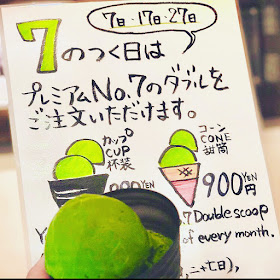 7日・17日・27日
7のつく日は
プレミアムNo.7のダブルを
ご注文いただけます。
カップ
CUP
杯装
コーン
CONE
甜筒
900YEN
YEN
7 Double scoop
of every month.
二十七日),